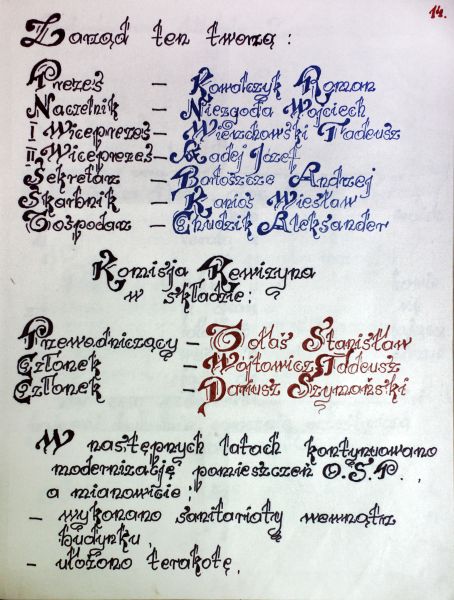 14.
Zarząd ten tworzą :
Prezes – Kowalczyk Roman
Naczelnik – Niezgoda Wojciech
I Wiceprezes – Wierzchowski Tadeusz
II Wiceprezes – Madej Józef
Sekretarz – Bartoszcze Andrzej
Skarbnik – Kanios Wiesław
Gospodarz – Chudzik Aleksander
Komisja Rewizyjna
w składzie;
Przewodniczący – Gołaś Stanisław
Członek – Wojtowicz Tadeusz
Członek – Dariusz Szymański
W następnych latach kontynuowano
modernizację pomieszczeń O.S.P.
a mianowicie;
– wykonano sanitariaty wewnątrz
budynku,
– ułożono terakotę,